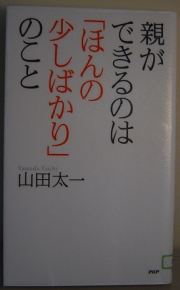 親が
できるのは
「ほんの
少しばかり」
のこと
Yamada Taichi
山田太一
PHP